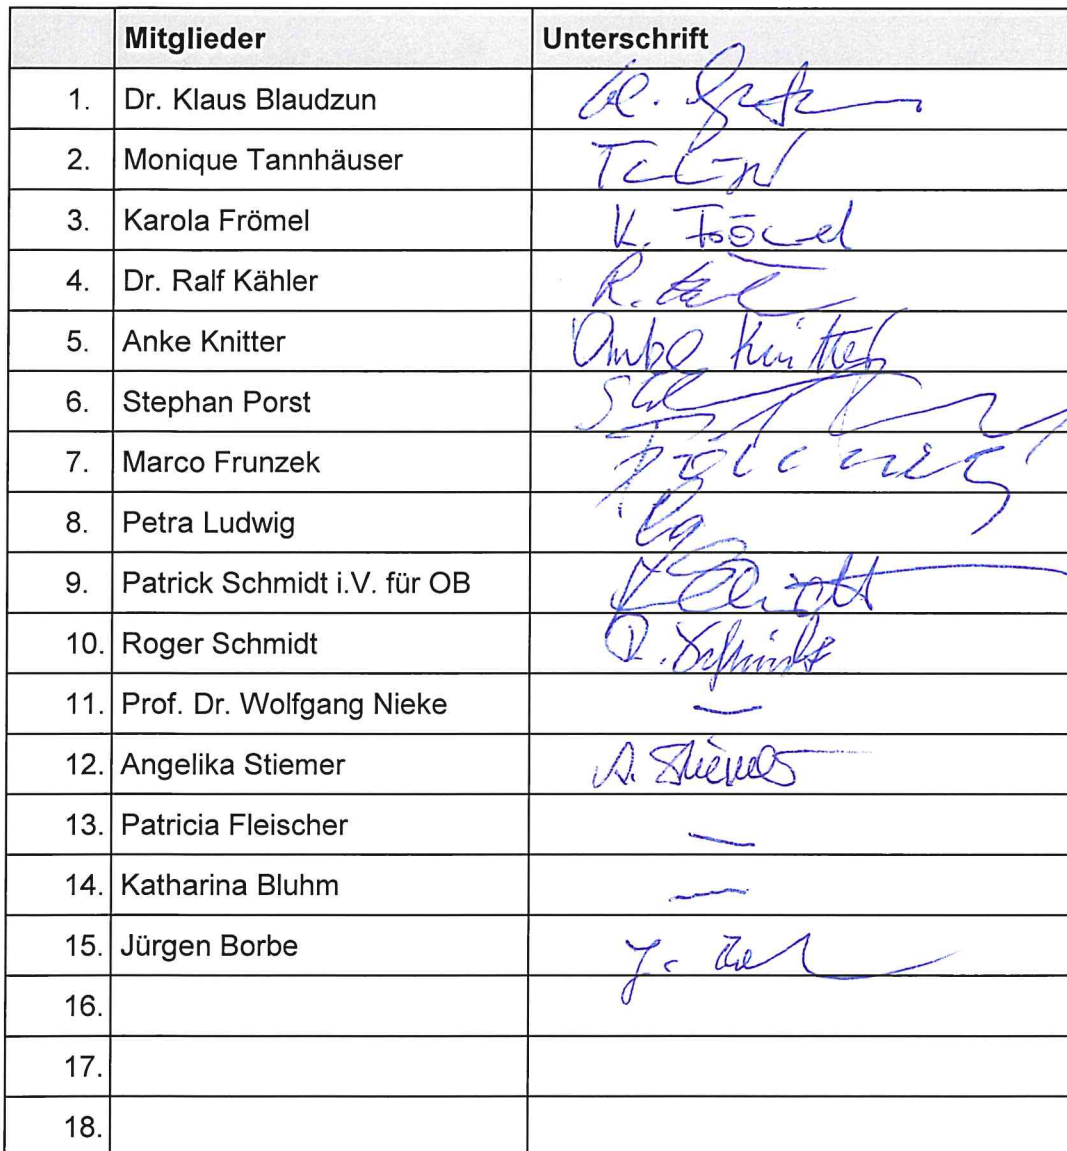 Mitglieder Unterschrift
1. Dr. Klaus Blaudzun
2. Monique Tannhäuser
3. Karola Frömel K. Frömel
4. Dr. Ralf Kähler R.
5. Anke Knitter Anke Knitter
6. Stephan Porst
7. Marco Frunzek
8. Petra Ludwig
9. Patrick Schmidt i.V. für OB
10. Roger Schmidt R. Schmidt
11. Prof. Dr. Wolfgang Nieke –
12. Angelika Stiemer A. Stiemer
13. Patricia Fleischer –
14. Katharina Bluhm –
15. Jürgen Borbe J.
16.
17.
18.